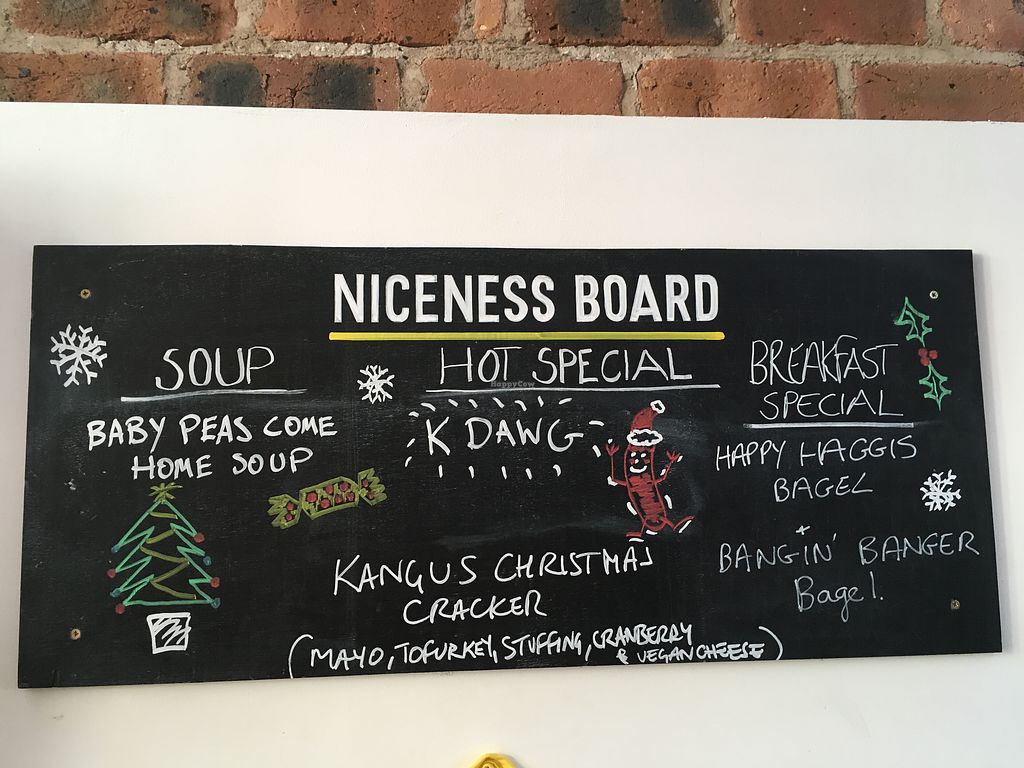 NICENESS BOARD
SOUP
BABY PEAS COME
HOME SOUP
HOT SPECIAL
HappyCow
K DAWG
KANGUS CHRISTMAS
CRACKER
(MAYO, TOFURKEY, STUFFING, CRANBERRY
& VEGAN CHEESE)
BREAKFAST
SPECIAL
HAPPY HAGGIS
BAGEL
+
BANGIN' BANGER
Bagel.